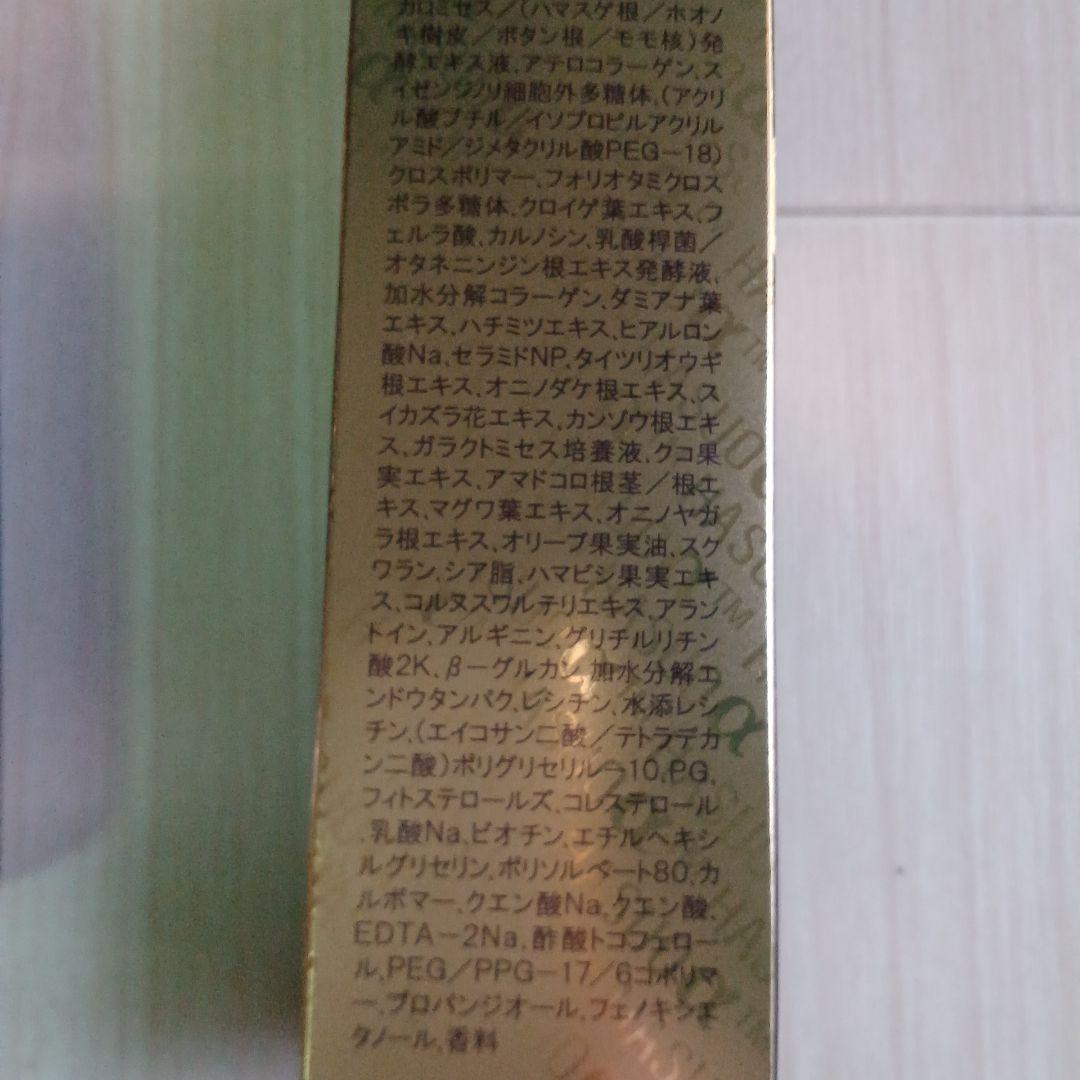 カロミセス／(ハマスゲ根／ホオノ
キ樹皮／ボタン根／モモ核)発
酵エキス液、アテロコラーゲン、ス
イゼンジノリ細胞外多糖体、(アクリ
ル酸ブチル／イソプロピルアクリル
アミド／ジメタクリル酸PEG－18)
クロスポリマー、フォリオタミクロス
ポラ多糖体、クロイゲ葉エキス、フ
ェルラ酸、カルノシン、乳酸桿菌／
オタネニンジン根エキス発酵液、
加水分解コラーゲン、ダミアナ葉
エキス、ハチミツエキス、ヒアルロン
酸Na、セラミドNP、タイツリオウギ
根エキス、オニノダケ根エキス、ス
イカズラ花エキス、カンゾウ根エキ
ス、ガラクトミセス培養液、クコ果
実エキス、アマドコロ根茎／根エ
キス、マグワ葉エキス、オニノヤガ
ラ根エキス、オリーブ果実油、スク
ワラン、シア脂、ハマビシ果実エキ
ス、コルヌスワルテリエキス、アラン
トイン、アルギニン、グリチルリチン
酸2K、β－グルカン、加水分解エ
ンドウタンパク、レシチン、水添レシ
チン、(エイコサン二酸／テトラデカ
ン二酸)ポリグリセリル－10、PG、
フィトステロールズ、コレステロール
、乳酸Na、ビオチン、エチルヘキシ
ルグリセリン、ポリソルベート80、カ
ルボマー、クエン酸Na、クエン酸、
EDTA－2Na、酢酸トコフェロー
ル、PEG／PPG－17／6コポリマ
ー、プロパンジオール、フェノキシエ
タノール、香料